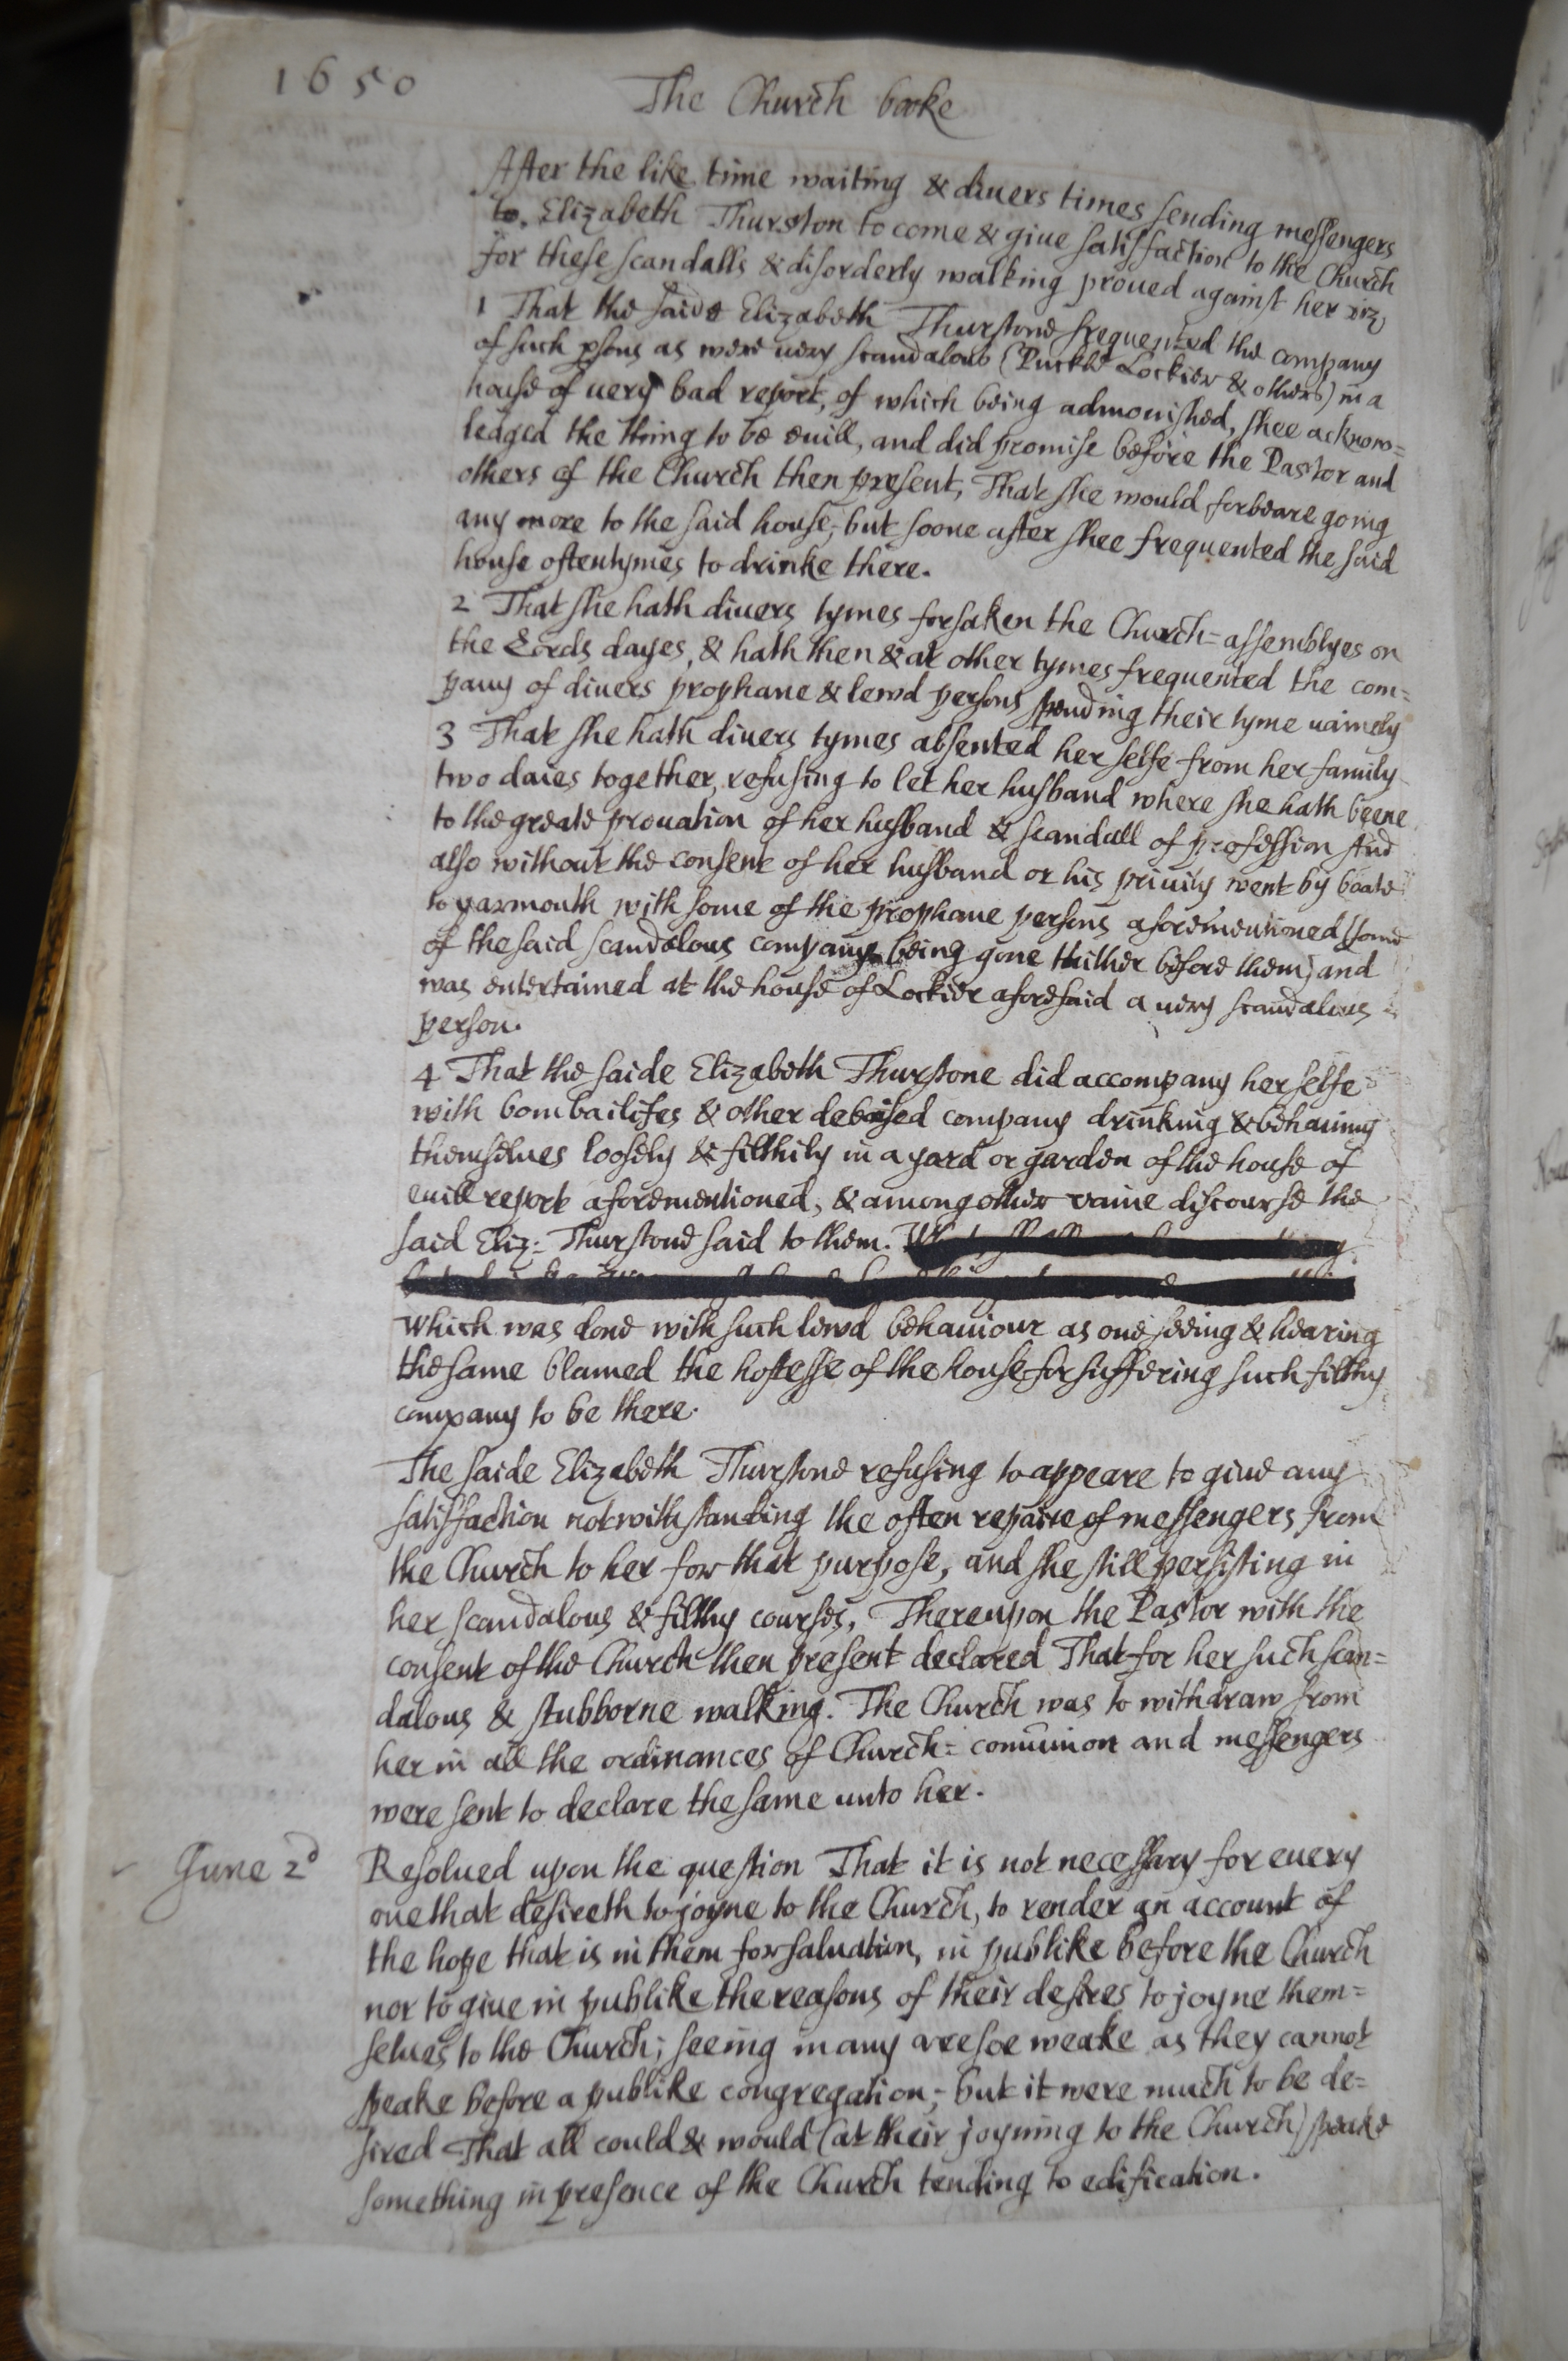 1650
The Church booke
After the like time waiting & divers times sending messengers
to Elizabeth Thurston to come & giue satisfaction to the Church
for these scandalls & disorderly walking proued against her viz
1 That the saide Elizabeth Thurstone frequented the company
of such psons as were uery scandalous (Puckle Lockier & others) in a
house of uery bad report, of which being admonished, shee acknow=
ledged the thing to be euill, and did promise before the Pastor and
others of the Church then present, That she would forbeare going
any more to the said house, but soone after shee frequented the said
house oftentymes to drinke there.
2 That she hath diuers tymes forsaken the Church=assemblyes on
the Lords dayes, & hath then & at other tymes frequented the com=
pany of diuers prophane & lewd persons spending their tyme uainely
3 That she hath diuers tymes absented her selfe from her family
two daies together, refusing to let her husband where she hath beene
to the greate prouation of her husband & scandall of profession And
also without the consent of her husband or his priuity went by boate
to yarmouth with some of the prophane persons aforementioned (some
of the said scandalous company being gone thither before them) and
was entertained at the house of Lockier aforesaid a uery scandalous
person.
4 That the saide Elizabeth Thurstone did accompany her selfe
with bombailifes & other deboised company drinking & behauing
themselues loosely & filthily in a yard or garden of the house of
euill report aforementioned, & among other vaine discourse the
said Eliz: Thurstone said to them.
Which was done with such lewd behauiour as one seeing & hearing
the same blamed the hostesse of the house for suffering such filthy
company to be there.
The saide Elizabeth Thurstone refusing to appeare to giue any
satisfaction notwithstanding the often repaire of messengers from
the Church to her for that purpose, and she still persisting in
her scandalous & filthy courses, Thereupon the Pastor with the
consent of the Church then present declared That for her such scan=
dalous & stubborne walking. The Church was to withdraw from
her in all the ordinances of Church=comūnion and messengers
were sent to declare the same unto her.
June 2d
Resolued upon the question That it is not necessary for euery
one that desireth to joyne to the Church, to render an account of
the hope that is in them for saluation, in publike before the Church
nor to giue in publike the reasons of their desires to joyne them=
selues to the Church; seeing many are soe weake as they cannot
speake before a publike congregation; but it were much to be de=
sired That all could & would (at their joyning to the Church) speake
something in presence of the Church tending to edification.